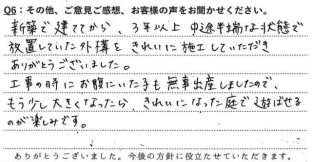 Q6：その他、ご意見ご感想、お客様の声をお聞かせください。
新築で建ててから、3年以上 中途半端な状態で
放置していた外構を きれいに施工していただき
ありがとうございました。
工事の時にお腹にいた子も無事出産しましたので、
もう少し大きくなったら、きれいになった庭で遊ばせる
のが楽しみです。
ありがとうございました。今後の方針に役立たせていただきます。